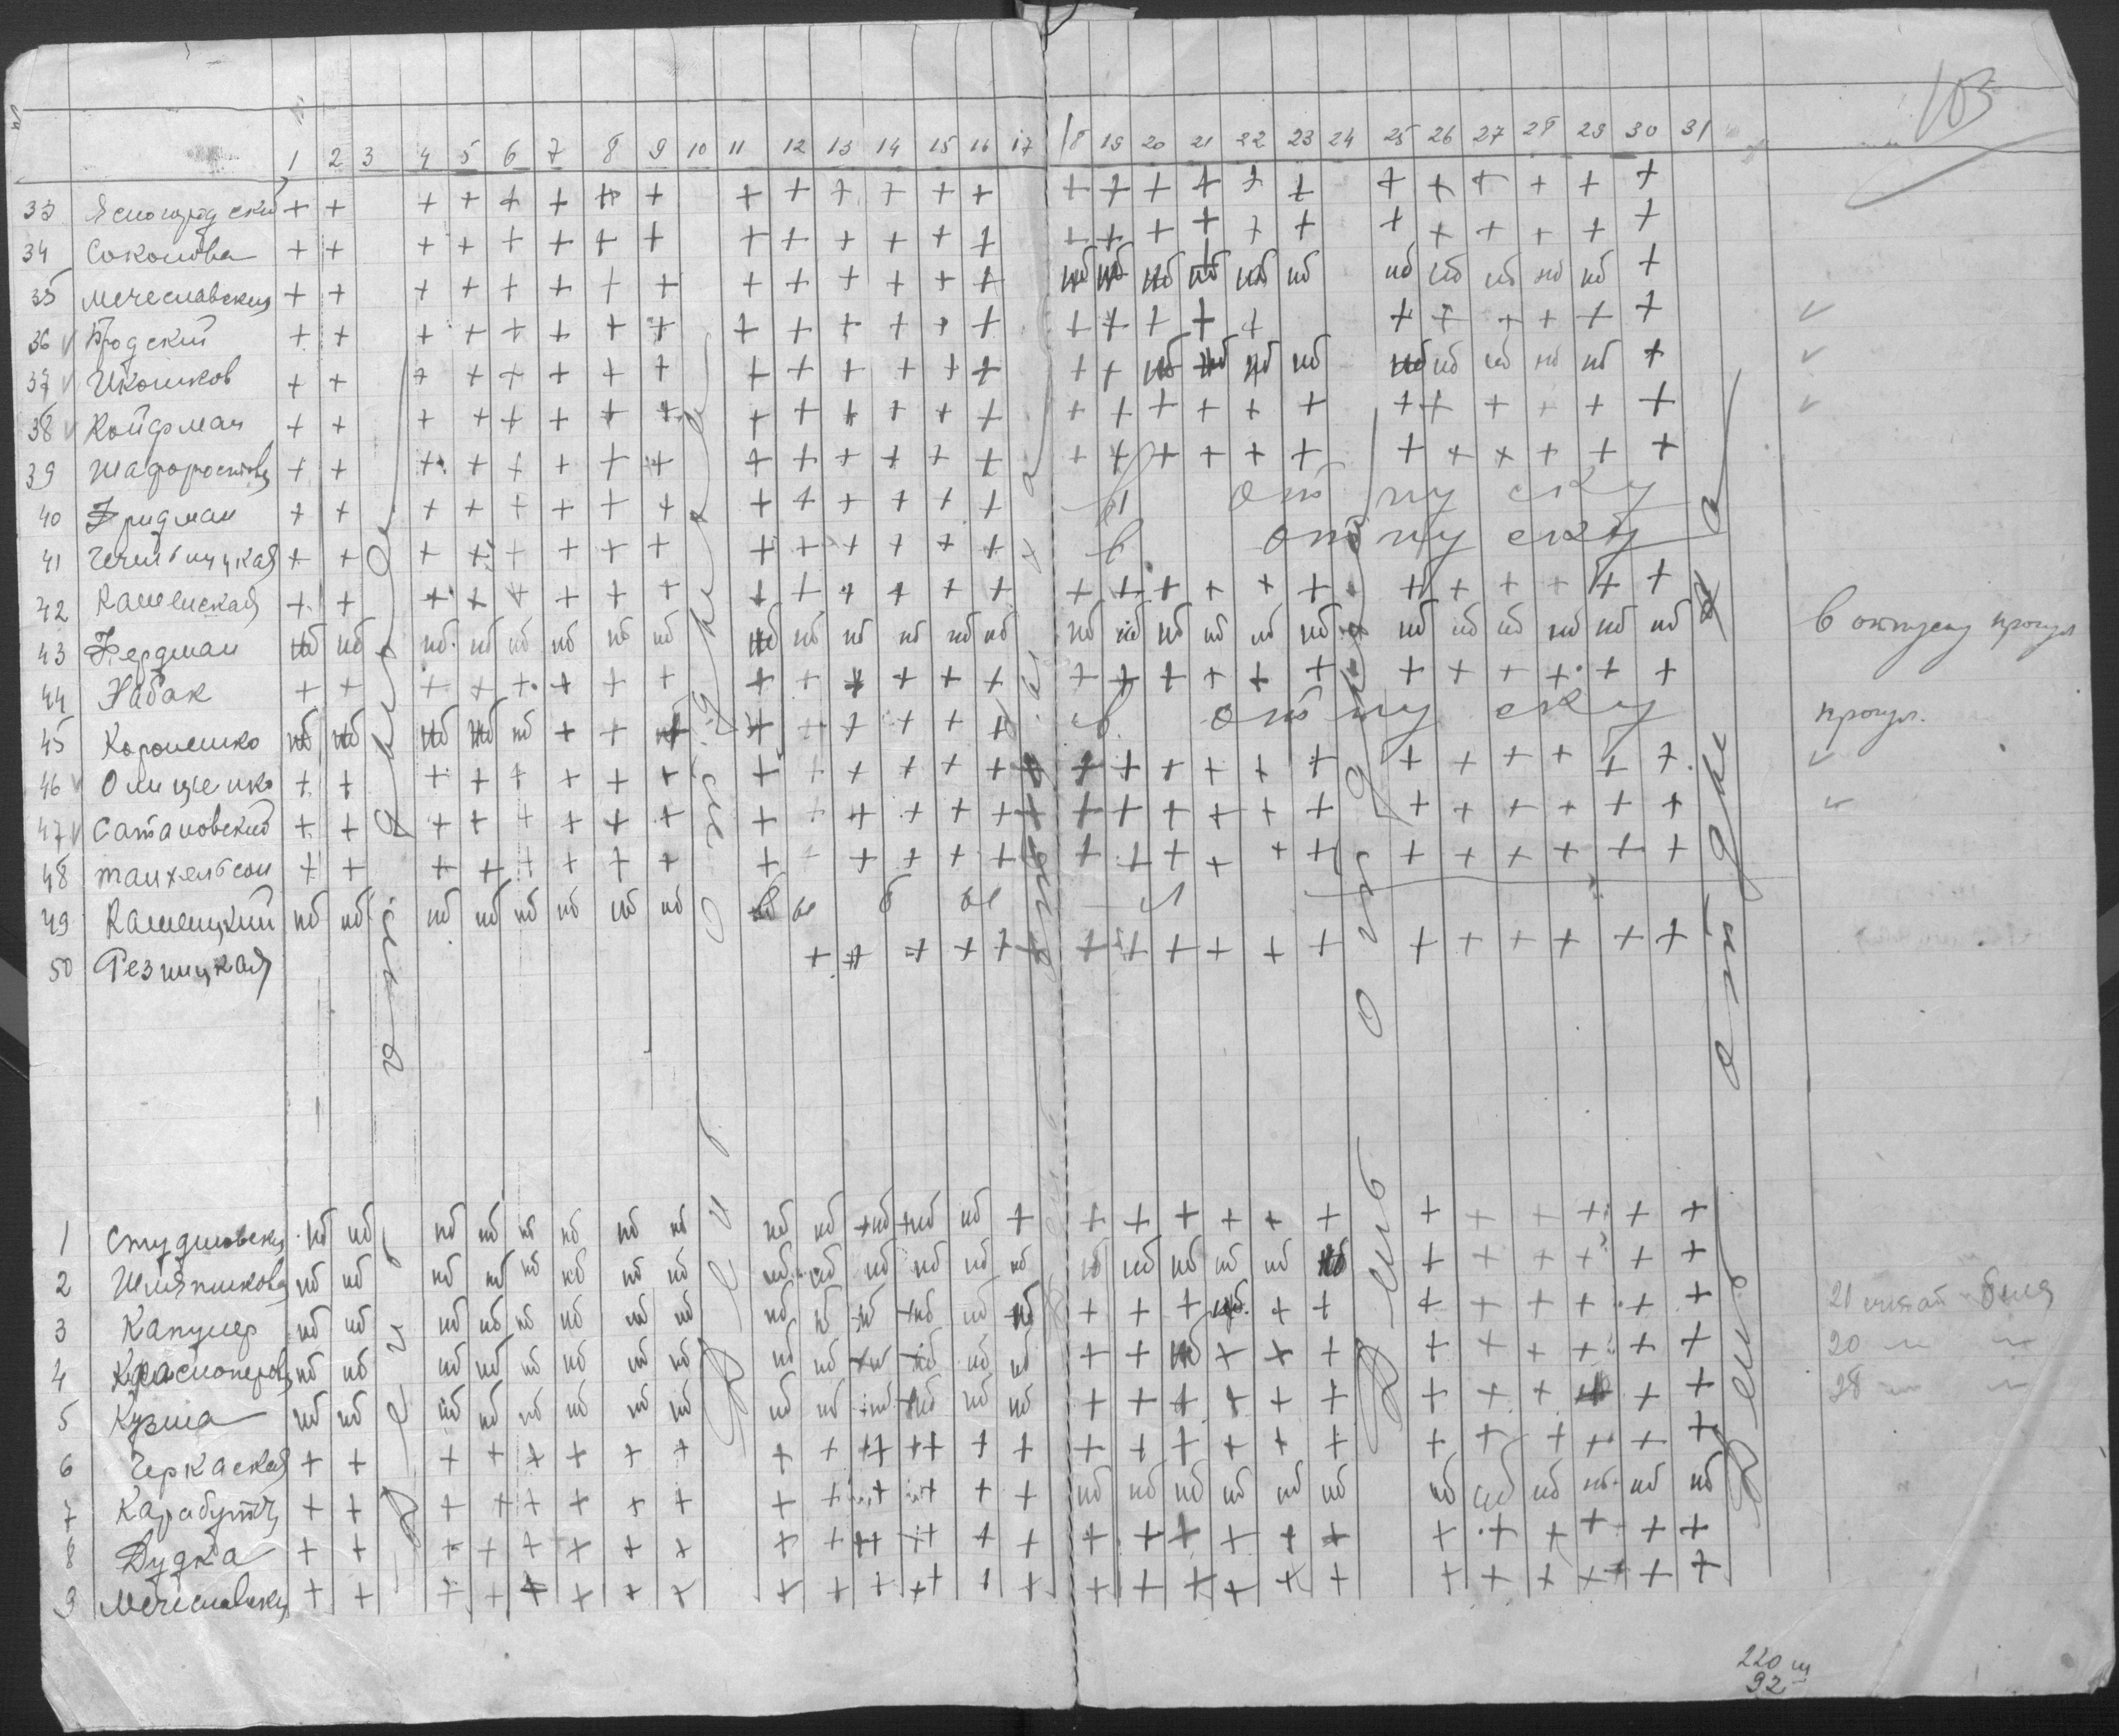 103
1 2 3 4 5 6 7 8 9 10 11 12 13 14 15 16 17 18 19 20 21 22 23 24 25 26 27 28 29 30 31
33 + + + + + + + + + + + + + + + + + + + + + + + + + +
34 Соколова + + + + + + + + + + + + + + + + + + + + + + + + + +
35 Мечеславская + + + + + + + + + + + + + + нб нб нб нб нб нб нб нб нб нб нб +
36 v Бродский + + + + + + + + + + + + + + + + + + + + + + + + + v
37 v + + + + + + + + + + + + + + + + нб нб нб нб нб нб нб нб нб + v
38 v Койфман + + + + + + + + + + + + + + + + + + + + + + + + + + v
39 + + + + + + + + + + + + + + + + + + + + + + + + + +
40 Фридман + + + + + + + + + + + + + + в отпуску
41 + + + + + + + + + + + + + + в отпуску
42 Каменская + + + + + + + + + + + + + + + + + + + + + + + + + +
43 Фердман нб нб нб нб нб нб нб нб нб нб нб нб нб нб нб нб нб нб нб нб нб нб нб нб нб нб в отпуску прогул
44 Хабак + + + + + + + + + + + + + + + + + + + + + + + + + +
45 Короленко нб нб нб нб нб + + + + + + + + в отпуску прогул.
46 v Олищенко + + + + + + + + + + + + + + + + + + + + + + + + + + v
47 v Сатановский + + + + + + + + + + + + + + + + + + + + + + + + + + v
48 Танхельсон + + + + + + + + + + + + + + + + + + + + + + + + + +
49 Каменецкий нб нб нб нб нб нб нб нб выбыл
50 Резницкая + + + + + + + + + + + + + + + + +
день отдыха
день отдыха
день отдыха
день отдыха
день отдыха
1 нб нб нб нб нб нб нб нб нб нб нб нб нб + + + + + + + + + + + + +
2 Шляпникова нб нб нб нб нб нб нб нб нб нб нб нб нб нб нб нб нб нб нб нб + + + + + +
3 Капулер нб нб нб нб нб нб нб нб нб нб нб нб нб нб + + + нб + + + + + + + + 21
4 Красноперова нб нб нб нб нб нб нб нб нб нб нб нб нб нб + + нб + + + + + + + + + 20
5 Кузма нб нб нб нб нб нб нб нб нб нб нб нб нб нб + + + + + + + + + + + 28
6 Черкаская + + + + + + + + + + + + + + + + + + + + + + + + + +
7 + + + + + + + + + + + + + + нб нб нб нб нб нб нб нб нб нб нб нб
8 Дудка + + + + + + + + + + + + + + + + + + + + + + + + + +
9 + + + + + + + + + + + + + + + + + + + + + + + + + +
220
92